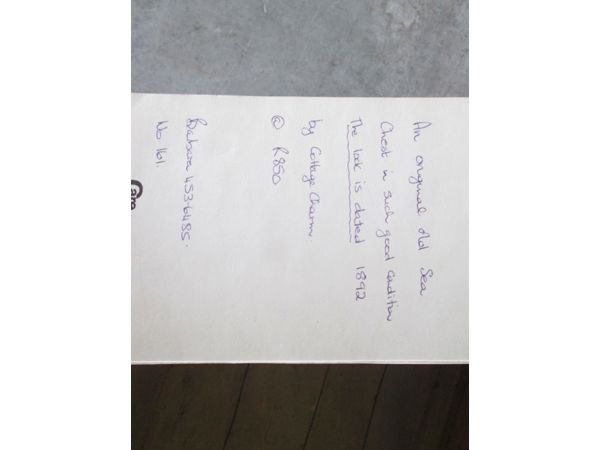 An original old Sea
Chest in such good condition
The lock is dated 1892
by Cottage Charm
@ R850
Babara 453-6485.
No 161.
Care